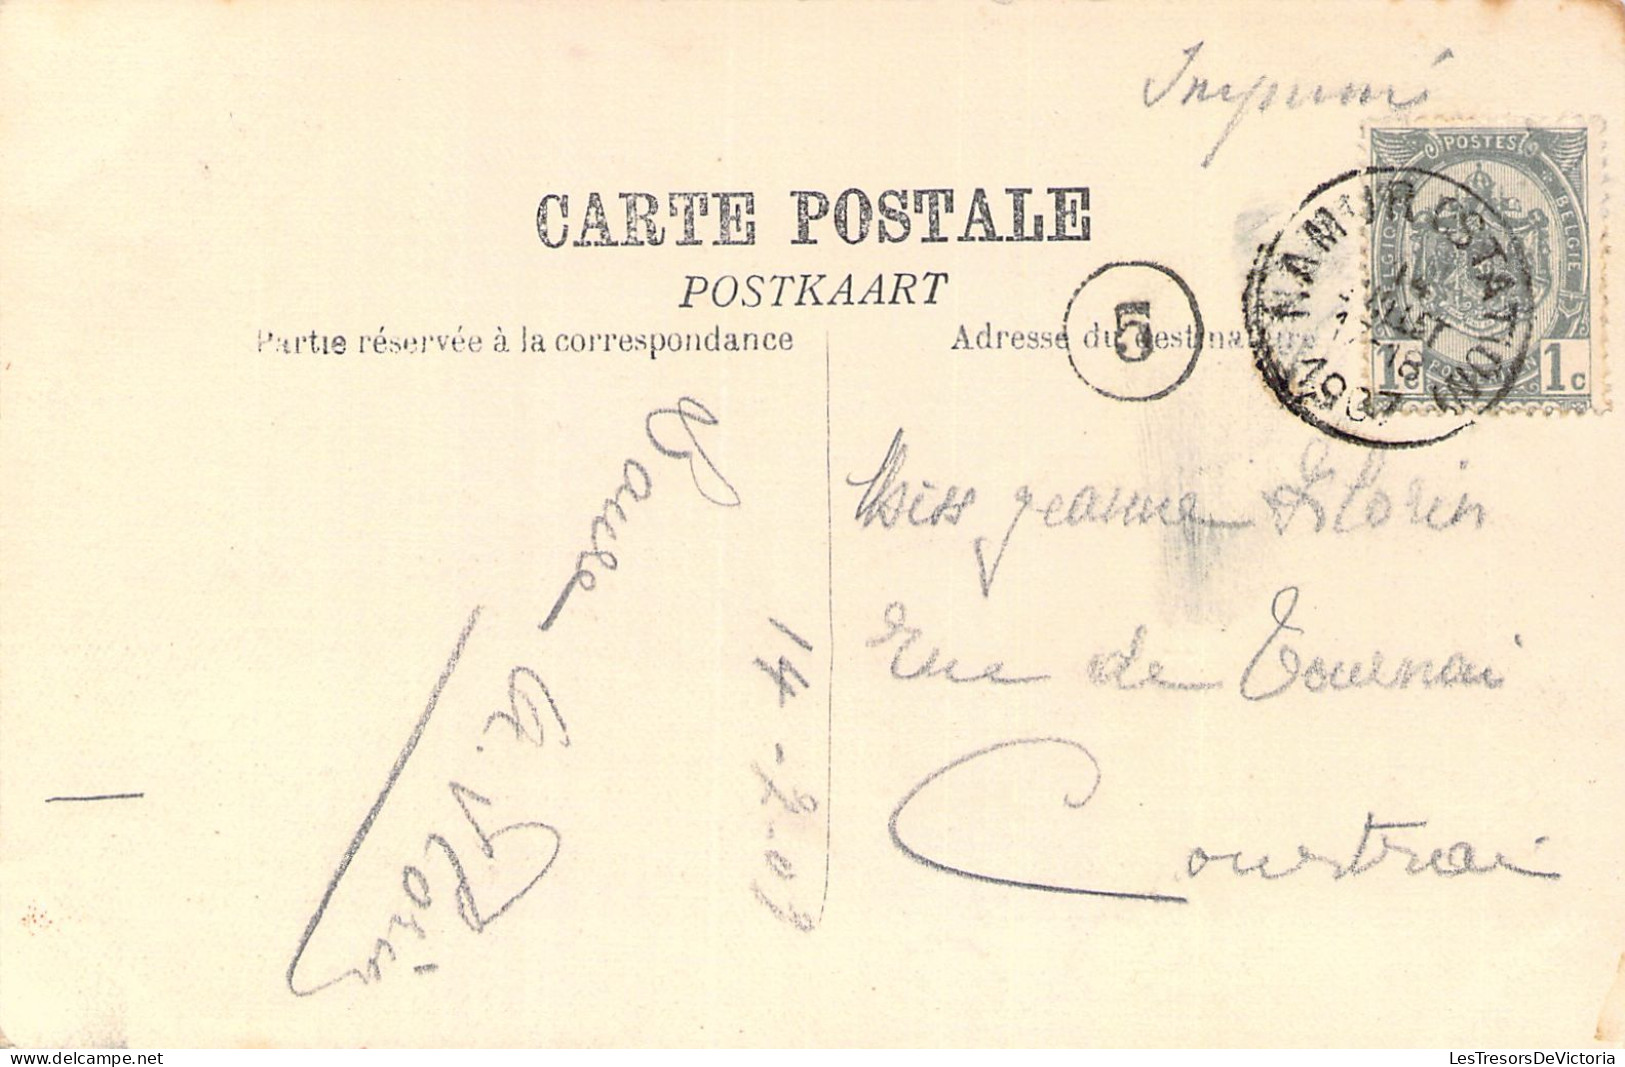 Imprimé
POSTES
BELGIQUE BELGIE
1c 1c
NAMUR (STATION)
14
JUILLET
18
CARTE POSTALE
POSTKAART
5
Partie réservée à la correspondance
Adresse du destinataire
Miss Jeanne Florin
Rue de Tournai
Courtrai
A. Florin
14-7-09
LesTresorsDeVictoria